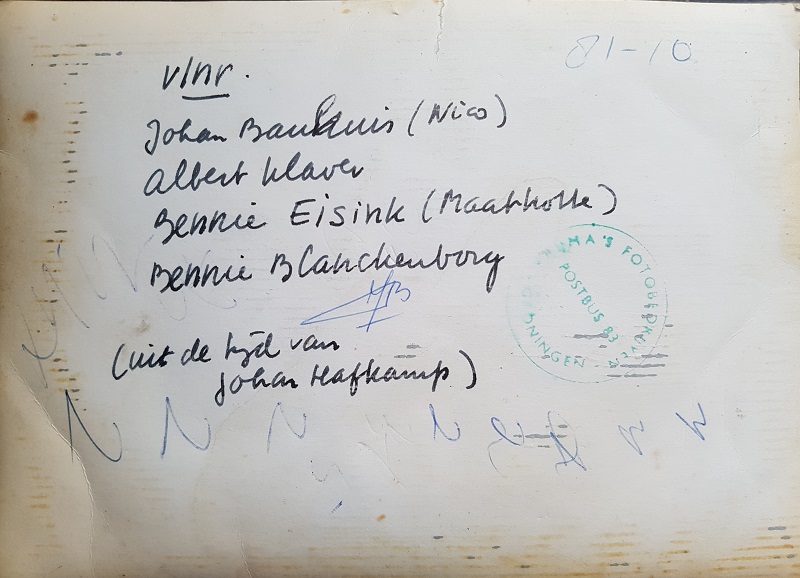 81-10
v/nr.
Johan Baukuis (Nico)
Albert Klaver
Bennie Eisink (Maatkotte)
Bennie Blanckenborg
HB
(uit de tijd van
Johan Hafkamp)
MA'S FOTOBEDRIJVEN
POSTBUS 83
NINGEN